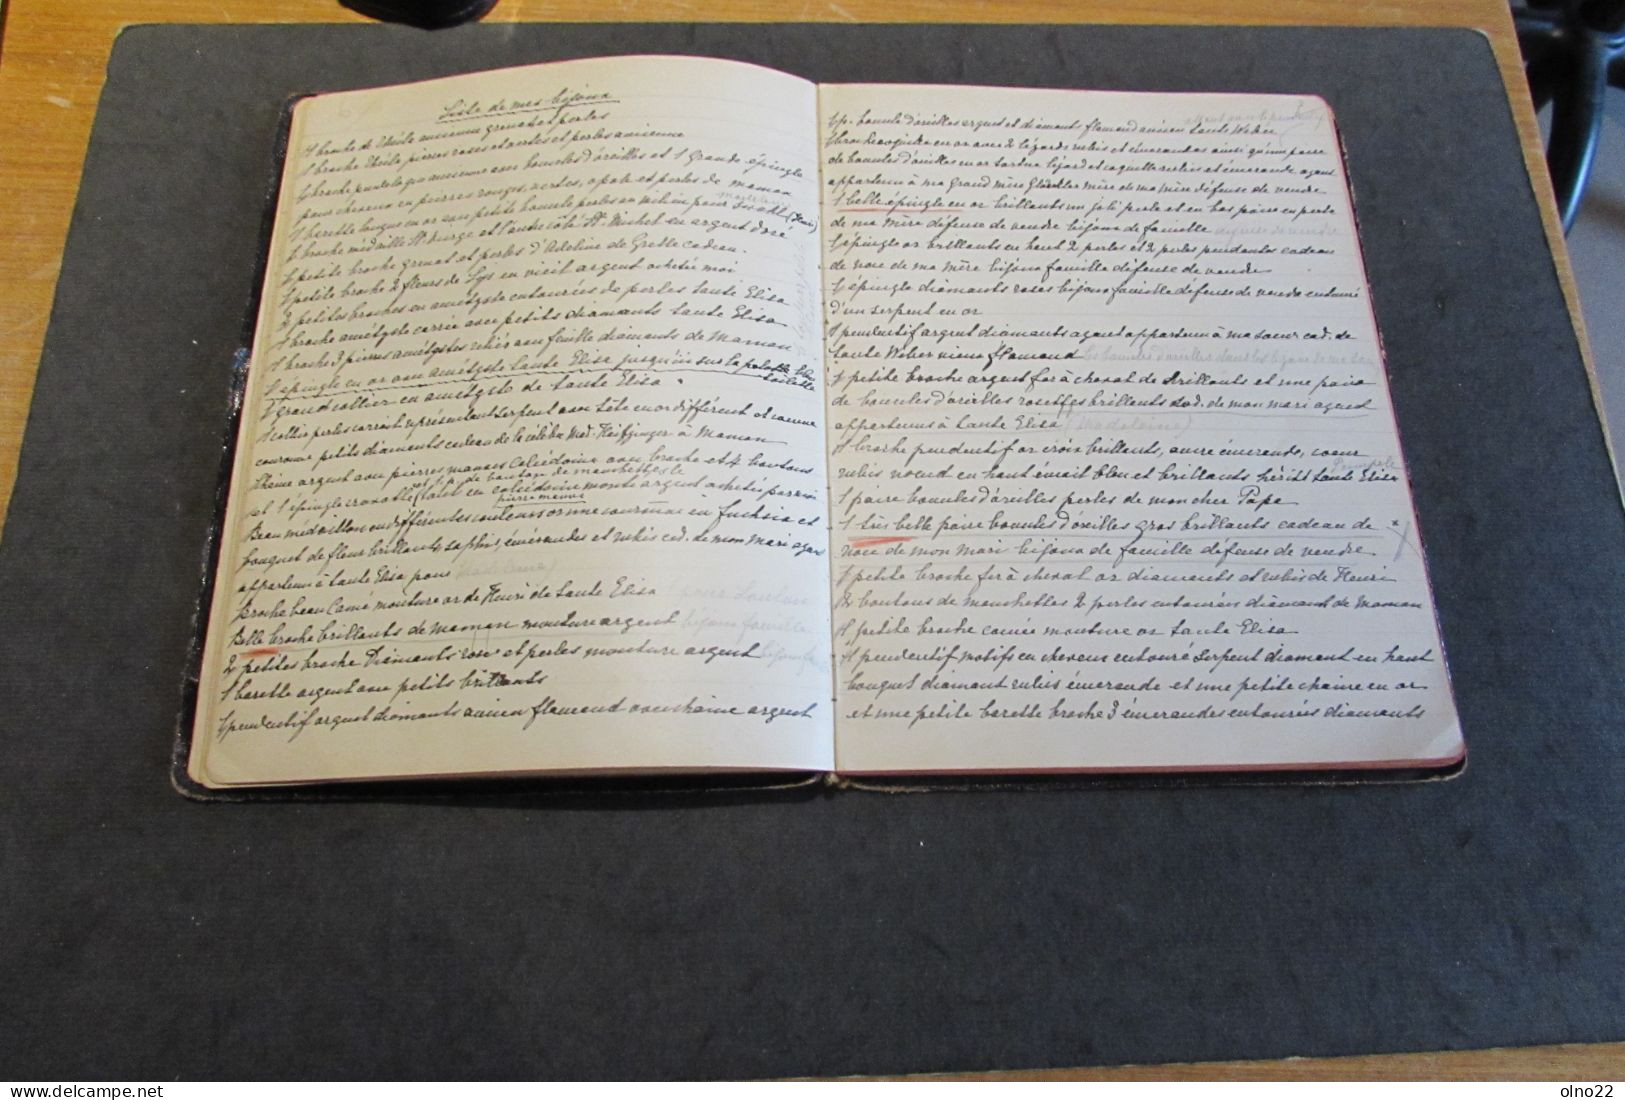 Liste de mes bijoux
1 broche de Sicile ancienne grenats et perles
1 broche Sicile pierres roses et vertes et perles ancienne
1 broche pendeloque ancienne avec boucles d'oreilles et 1 Grande épingle
pour cheveux en pierres rouges, vertes, opale et perles de maman
1 barette longue en or avec petite boucle perles au milieu pour (Henri)
1 broche médaille St Vierge et l'autre côté St Michel en argent doré
1 petite broche grenat et perles d'Adeline de cadeau.
1 petite broche 2 fleurs de Lys en vieil argent achetée moi
2 petites broches en améthyste entourées de perles tante Elisa
1 broche améthyste carrée avec petits diamants tante Elisa
1 broche 3 pierres améthystes reliés avec feuille diamants de Maman
1 épingle en or avec améthyste tante Elisa jusqu'ici sur la pelotte bleu
toilette
1 grand collier en améthyste de tante Elisa
1 collier perles corail représentant serpent avec tête en or différent et comme
couronne petits diamants cadeau de la célèbre Mad. à Maman
Chaine argent avec pierres mauves Calcédoine avec broche et 4 boutons
de manchettes
et 1 épingle cravatte (tout en calcédoine monté argent achetée par moi
pierre mauve
Beau médaillon en différentes couleurs or une couronne en fuchsia et
bouquet de fleurs brillants, saphir, émeraudes et rubis cad. de mon mari ayant
appartenu à tante Elisa pour (Madeleine)
Broche beau Camé monture or de Henri de tante Elisa
Belle broche brillants de maman monture argent bijoux famille
2 petites broche Diamants rose et perles monture argent bijoux
1 barette argent avec petits brillants
1 pendentif argent diamants ancien flamand avec chaine argent
1 p. boucle d'oreilles argent et diamants flamand ancien tante Weber
1 broche en or avec 2 lézards rubis et émeraudes ainsi qu'une paire
de boucles d'oreilles en or tortue lézard et coquille rubis et émeraude ayant
appartenu à ma Grand mère mère de ma mère défense de vendre
1 belle épingle en or brillants un joli perle et en bas poire en perle
de ma mère défense de vendre bijoux de famille
1 épingle or brillants en haut 2 perles et 2 perles pendantes cadeau
de noce de ma mère bijoux famille défense de vendre
1 épingle diamants roses bijoux famille défense de vendre entouré
d'un serpent en or
1 pendentif argent diamants ayant appartenu à ma soeur cad. de
tante Weber vieux flamand
1 petite broche argent fer à cheval de brillants et une paire
de boucles d'oreilles rosettes brillants cad. de mon mari ayant
appartenus à tante Elisa (Madeleine)
1 broche pendentif or croix brillants, ancre émeraude, coeur
rubis noeud en haut émail bleu et brillants hérité tante Elisa
1 paire boucles d'oreilles perles de mon cher Papa
1 très belle paire boucles d'oreilles gros brillants cadeau de
noce de mon Mari bijoux de famille défense de vendre
1 petite broche fer à cheval or diamants et rubis de Henri
2 boutons de manchettes 2 perles entourées diamant de Maman
1 petite broche camée monture or tante Elisa
1 pendentif motifs en cheveux entouré serpent diamant en haut
bouquet diamant rubis émeraude et une petite chaine en or
et une petite barette broche 3 émeraudes entourées diamants
olno22